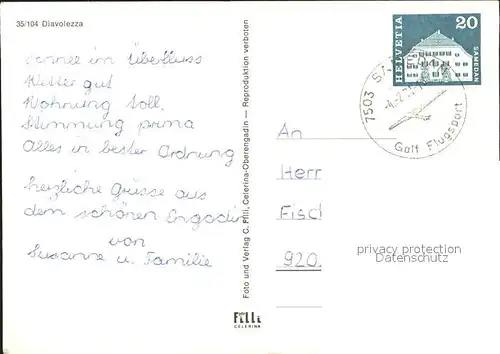 35/104 Diavolezza
Schnee im Überfluss
Wetter gut
Wohnung toll.
Stimmung prima
Alles in bester Ordnung
herzliche Grüsse aus
dem schönen Engadin
von
Susanne u. Familie
Foto und Verlag C. Filli, Celerina-Oberengadin — Reproduktion verboten
Filli
CELERINA
HELVETIA
20
SAMEDAN
7503
Golf Flugsport
An
Herr
Fisc
920
privacy protection
Datenschutz